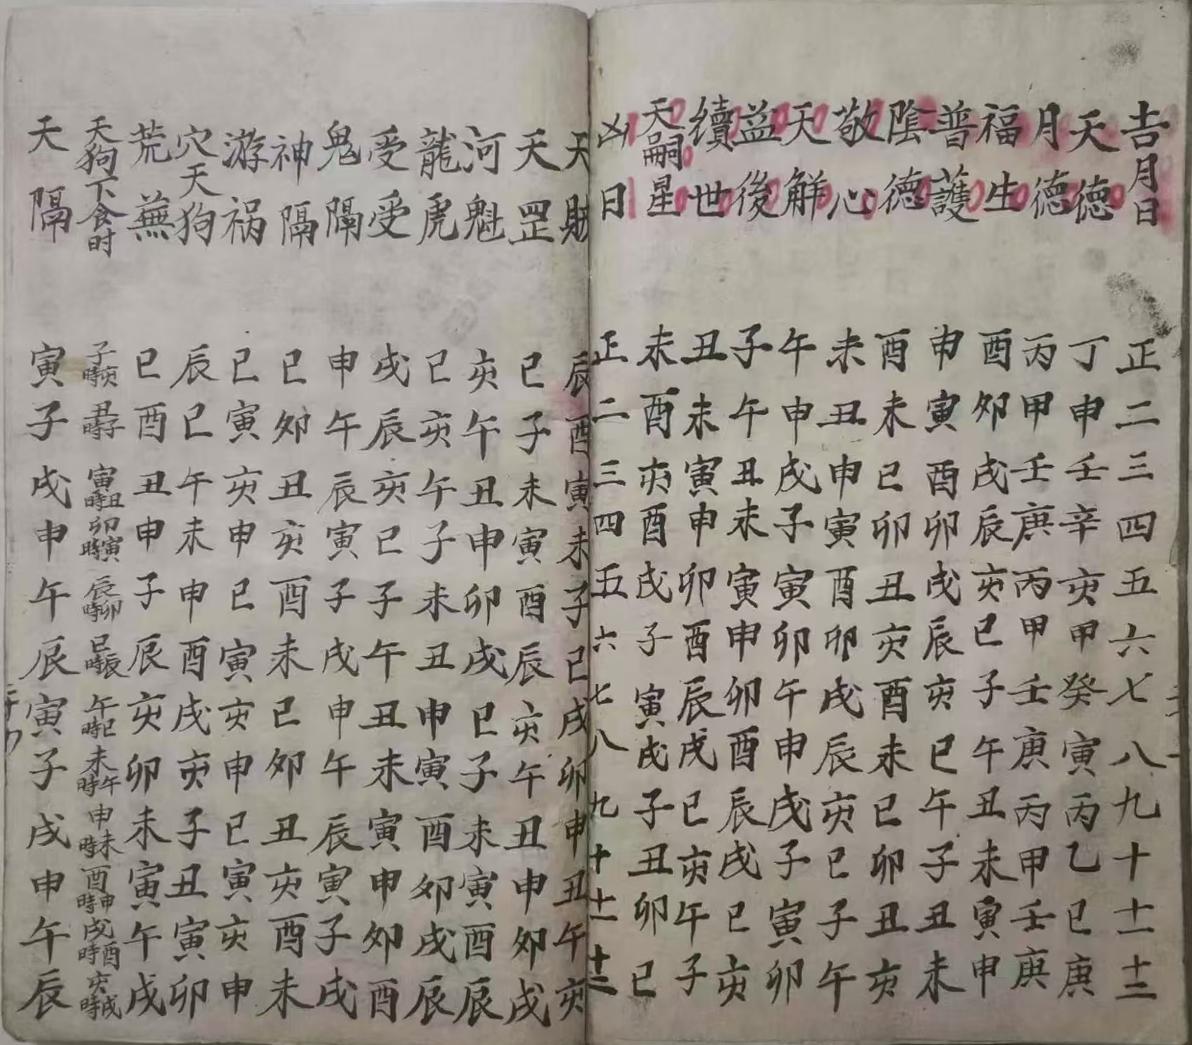 吉月日 正二三四五六七八九十十一十二
天德 丁申壬辛亥甲癸寅丙乙巳庚
月德 丙甲壬庚丙甲壬庚丙甲壬庚
福生 酉卯戌辰亥巳子午丑未寅申
普護 申寅酉卯戌辰亥巳午子丑未
陰德 酉未巳卯丑亥酉未巳卯丑亥
敬心 未丑申寅酉卯戌辰亥巳子午
天解 午申戌子寅卯午申戌子寅卯
益後 子午丑未寅申卯酉辰戌巳亥
續世 丑未寅申卯酉辰戌巳亥午子
天嗣星 未酉亥酉戌子寅戌子丑卯巳
凶日 正二三四五六七八九十十一十二
天財 辰酉寅未子巳戌卯申丑午亥
天罡 巳子未寅酉辰亥午丑申卯戌
河魁 亥午丑申卯戌巳子未寅酉辰
龍虎 巳亥午子未丑申寅酉卯戌辰
受受 戌辰亥巳子午丑未寅申卯酉
鬼隔 申午辰寅子戌申午辰寅子戌
神隔 巳卯丑亥酉未巳卯丑亥酉未
游祸 巳寅亥申巳寅亥申巳寅亥申
穴天狗 辰巳午未申酉戌亥子丑寅卯
荒蕪 巳酉丑申子辰亥卯未寅午戌
天狗下食时 子時亥 丑時子 寅時丑 卯時寅 辰時卯 巳時辰 午時巳 未時午 申時未 酉時申 戌時酉 亥時戌
天隔 寅子戌申午辰寅子戌申午辰